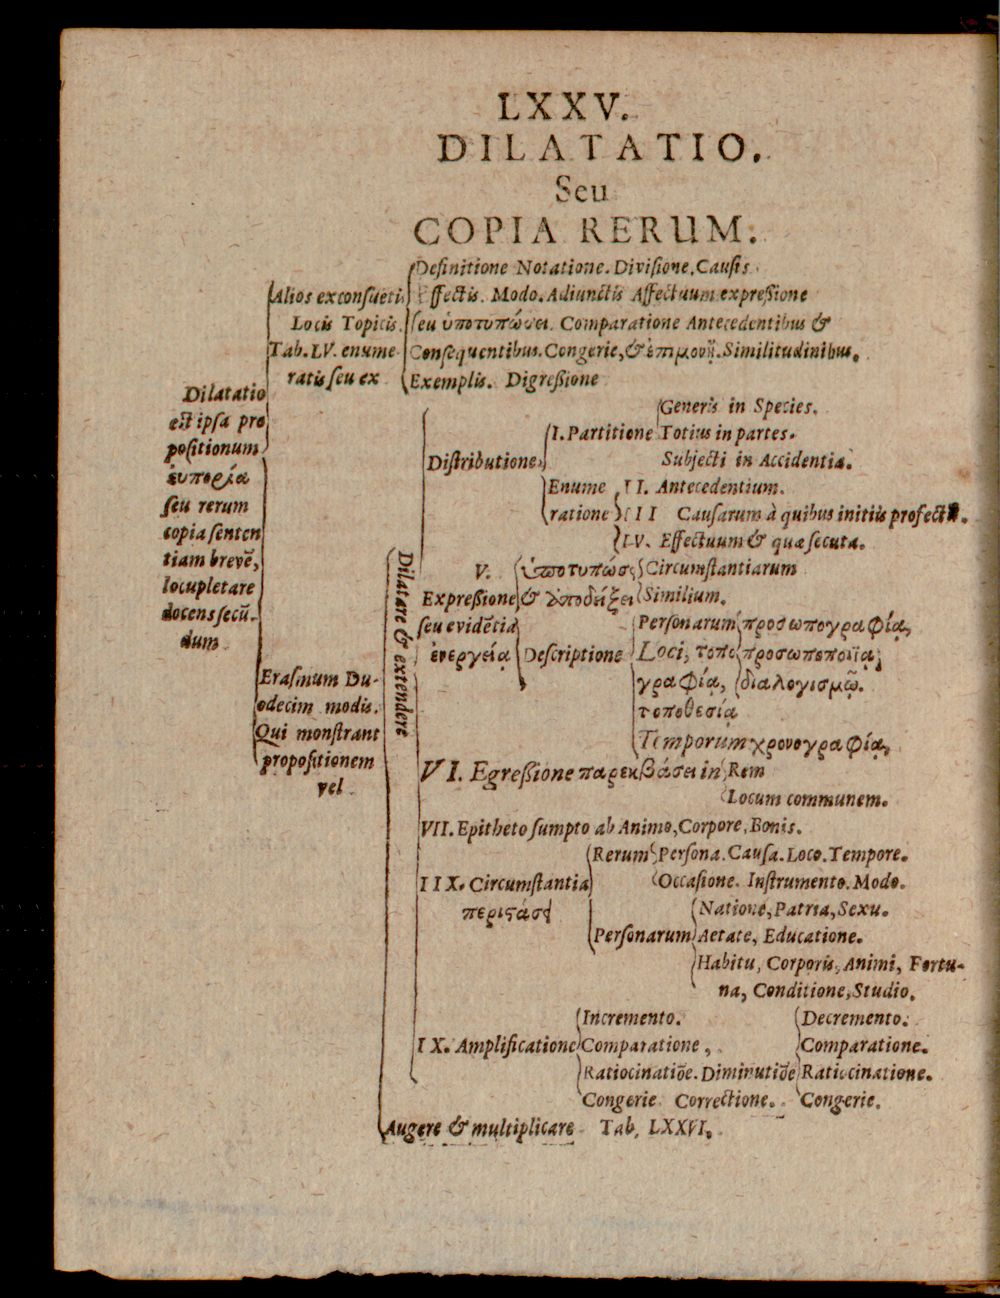 LXXV.
DILATATIO.
Seu
COPIA RERUM.
Dilatatio
est ipsa pro
positionum
ἐυπορία
seu rerum
copia senten
tiam brevē,
locupletare
docens secū-
dum
Alios ex consueti
Locis Topicis.
Tab. LV. enume-
ratis seu ex
Definitione Notatione. Divisione. Causis
Effectis. Modo. Adiunctis Affectuum expressione
seu ὑποτυπώσει. Comparatione Antecedentibus &
Consequentibus. Congerie, & ἐπιμονῇ. Similitudinibus.
Exemplis. Digressione
Erasmum Du-
odecim modis.
Qui monstrant
propositionem
vel
Dilatare & extendere
Distributione
I. Partitione
Generis in Species.
Totius in partes.
Subjecti in Accidentia.
Enume
ratione
II. Antecedentium.
III Causarum à quibus initiis profect
IV. Effectuum & quæ secuta.
V.
Expressione
seu evidētia
ἐνεργείᾳ
ὑποτυπώσ
& ἀποδείξει
Circumstantiarum
Similium.
Descriptione
Personarum
προσωπογραφίᾳ,
προσωποποιΐᾳ,
διαλογισμῷ.
Loci, τοπο
γραφίᾳ,
τοποθεσίᾳ
Temporum χρονογραφίᾳ,
VI. Egressione παρεκβάσει in
Rem
Locum communem.
VII. Epitheto sumpto ab Animo, Corpore, Bonis.
IIX. Circumstantia
περιστάσ
Rerum
Persona. Causa. Loco. Tempore.
Occasione. Instrumento. Modo.
Personarum
Natione, Patria, Sexu.
Aetate, Educatione.
Habitu, Corporis, Animi, Fortu-
na, Conditione, Studio.
IX. Amplificatione
Incremento.
Comparatione,
Ratiocinatiōe. Diminutiōe
Congerie Correctione.
Decremento.
Comparatione.
Ratiocinatione.
Congerie.
Augere & multiplicare Tab, LXXVI.